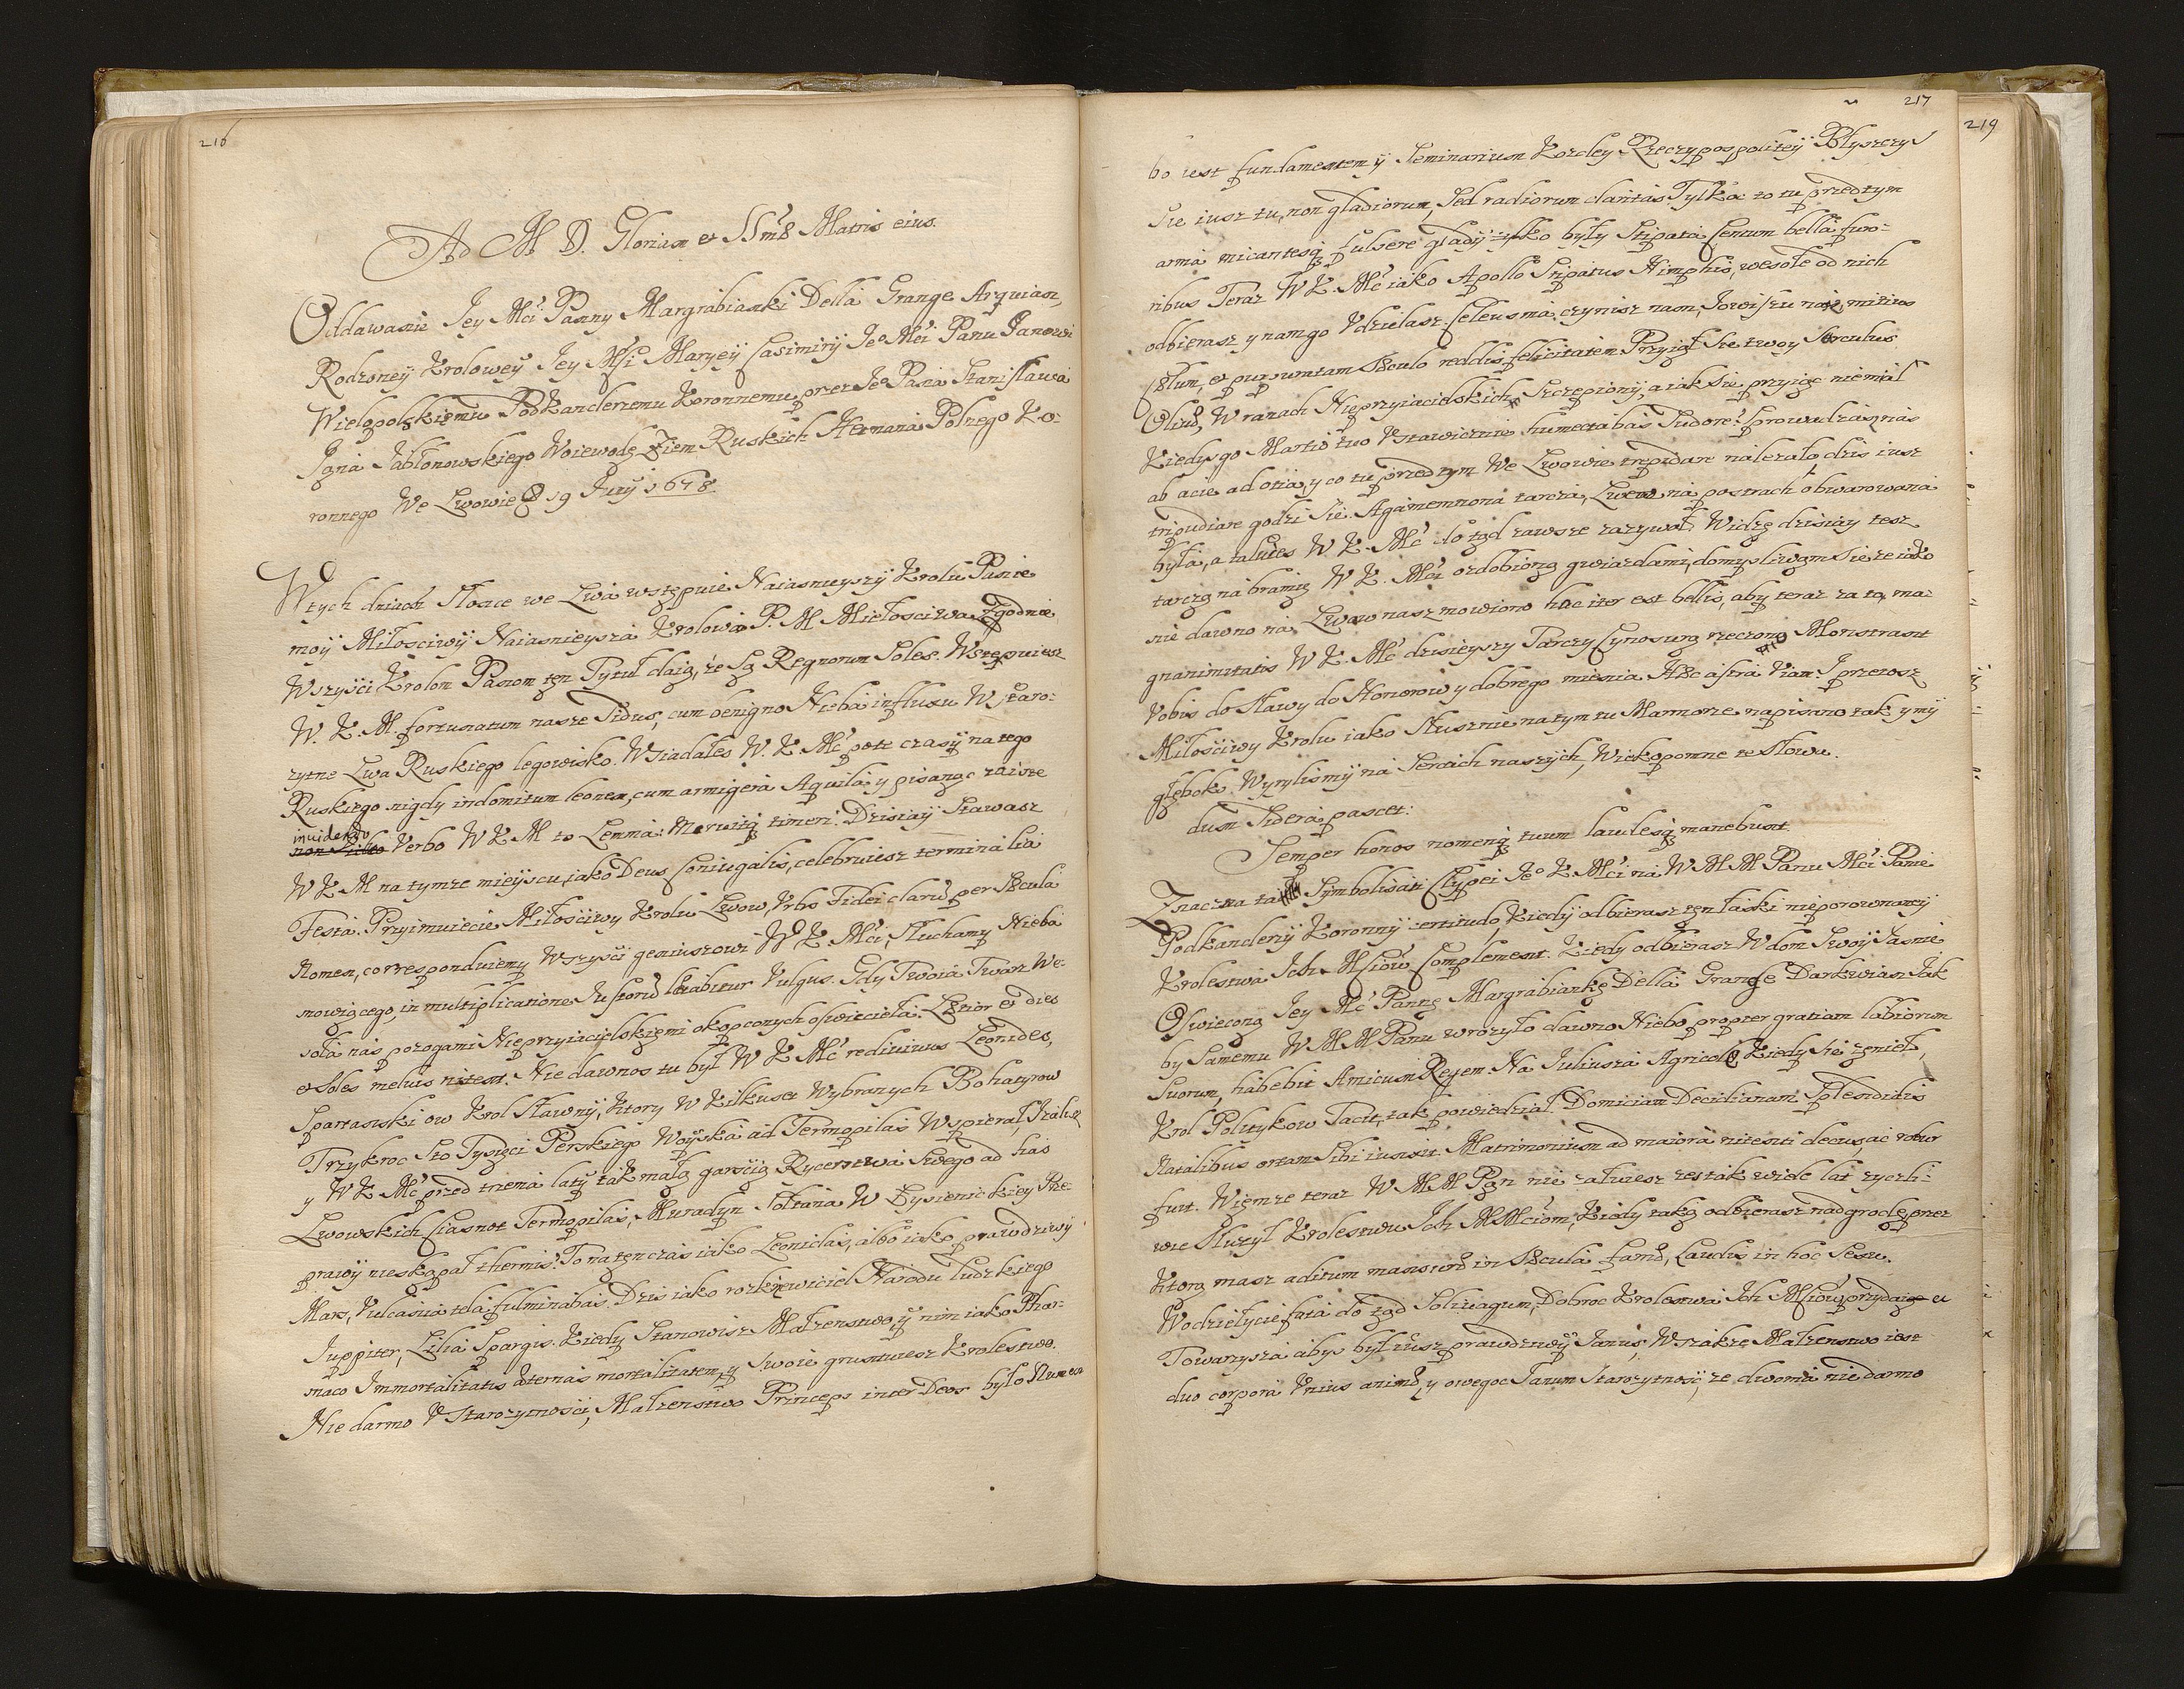 216
Ad M D. Gloriam et SSmæ Matris eius.
Oddawanie Jey Mći Panny Margrabianki Della Grange Arquian,
Rodzoney Krolowey Jey Mći Maryey Casimiry Jeo Mći Panu Janowi
Wielopolskiemu Podkanclerzemu Koronnemu przez Jeo Pana Stanisława
Jgna Jabłonowskiego Woiewodę Ziem Ruskich Hetmana Polnego Ko-
ronnego We Lwowie 19 Julÿ 1678.
W tych dniach Słonce we Lwa wstępuie Naiasnieyszÿ Krolu Panie
moÿ Miłosciwÿ Naiasnieysza Krolowa P. M Miłosciwa Zgodnie
Wszyści Krolom Panom ten Tytuł daią, że Są Regnorum Soles. Wstępuiesz
W. K. M. fortunatum nasze Sidus, cum benigno Nieba influxu W staro-
zytne Lwa Ruskiego legowisko. Wsiadałes W. K. Mć pote czasÿ na tego
Ruskiego nigdy indomitum leonem, cum armigera Aquila y pisanąc zaiste
invidendo
Verbo W K M to Lemma: Meruitq timeri. Dzisiaÿ Stawasz
W K M na tymze mieÿscu, iako Deus Coniugalis, celebruiesz terminalia
Festa. Przyimuiecie Miłosciwy Krolu Lwow, Urbs Fidei claræ per Sæcula
Nomen, correspónduiemy Wszyści geniuszowi W K Mći, Słuchamy Nieba
mowiącego, in multiplicatione Justoru lætabitur Vulgus. Gdy Twoia Twarz We-
soła nas pozogami Nieprzyiacielskiemi okopconych oswieciła. Lætior et dies
et Soles melius nitent. Nie dawnos tu był W K Mć redivivus Leonides,
Spartanski ow Krol Sławnÿ, Ktory W Kilkuset Wybranych Bohatyrow
Trzykroc Sto Tysięci Perskiego Woÿska ad Termopilas Wspierał,
y W K Mć przed trzema laty tak małą garscią Rycerstwa Swego ad has
Lwowskich Ciasnot Termopilas, Muradyn Sołtana W Łysienickiey Prze-
prawÿ nieskąpał thermis? To na ten czas iako Leonidas, albo iako prawdziwÿ
Mars, Vulcania tela fulminabas. Dzis iako rozkrzewiciel Narodu ludzkiego
Juppiter, Lilia Spargis. Kiedy Stanowisz Małzenstwo, y nim iako Phar-
maco Immortalitatis æternas mortalitatem, y Swoie gruntuiesz Krolestwo.
Nie darmo V Starozytnosci, Małzenstwo Princeps inter Deos było Numen
217
219
bo iest fundamentem ÿ Seminarium Kozdey Rzeczypospolitey Błyszczy
Sie iusz tu, non gladiorum, Sed radiorum claritas. Tylko co tu przedtym
arma micantesq fulgere gladÿ były Stipata Centum bella furo-
ribus Teraz W K. Mć iako Apollo Stipatus Nimphis, wesołe od nich
odbierasz y nam go Udzielasz Celeusma, czynisz nam, Jowiszu nasz, mitius
Cælum, et purpuratam Sæculo reddis felicitatem Przyiął Sie twoy Surculus
Olivæ, W ranach Nieprzyiacielskich Szczepionÿ, a iak Sie przyiąc niemiał
Kiedys go Martio tuo Ustawicznie humectabas Sudore? Sprowadzasz nas
ab acie ad otia, y co tu przedtym We Lwowie trepidare nalezało dzis iusz
tripudiare godzi Sie. Agamemnona tarcza, Lwem na postrach obwarowana
była, a takieies W K. Mć do tąd zawsze zazywał. Widzę dzisiay tesz
tarczą na bramię W K. Mći ozdobioną gwiazdami, domysliwam Sie ze iako
nie dawno na Lwow nasz mowiono hac iter est bellis, aby teraz za tą ma-
gnanimitatis W K. Mć dzisieyszy Tarczy Cynosurą rzeczono Monstrant
Vobis do Sławy do Honorow y dobrego mienia Hæc astra viam. J przetosz
Miłosciwy Krolu iako Słusznie na tym tu Marmorze napisano tak y mÿ
głęboko Wyrylismÿ na Sercach naszych, Wiekopomne te Słowa.
dum Sidera pascet:
Semper honos nomenq tuum laudesq manebunt.
Znaczna ta Symbolisati Clypei Jeo K Mći na W M M Panu Mći Panie
Podkanclerzÿ Koronnÿ certitudo, Kiedÿ odbierasz ten łaski nieporownaney
Krolestwa Ich Mśiow Complement. Kiedy odbierasz W dom Swoÿ Jasnie
Oswieconą Jey Mć Pannę Margrabiankę Della Grange Darkwian Jak
by Samemu W M M Panu wrozyło dawno Niebo propter gratiam labiorum
Suorum, habebit Amicum Regem. Na Juliusza Agricolę Kiedy Sie zenieł,
Krol Politykow Tacit, tak powiedział. Domician Decidianam Splendidis
Natalibus ortam Sibi iunxit. Matrimonium ad maiora nitenti decus, ac robur
fuit. Wiemze teraz W M M Pan nie załuiesz zes tak wiele lat zyczli-
wie Słuzył Krolestwu Ich MMciom, Kiedy taką odbierasz nadgrodę, przez
Ktorą masz aditum mansuræ in Sæcula famæ, Laudis in hoc Sexu.
Wodziełycię fata do tąd Solivagum, Dobroc Krolestwa Ich Msiow, przydaię ci
Towarzysza abys był iusz prawdziwÿ Janus, Wszakze Małzenstwo iest
duo corpora Unius animæ, y owegoc Janum Starozytnosÿ, ze dwoma nie darmo